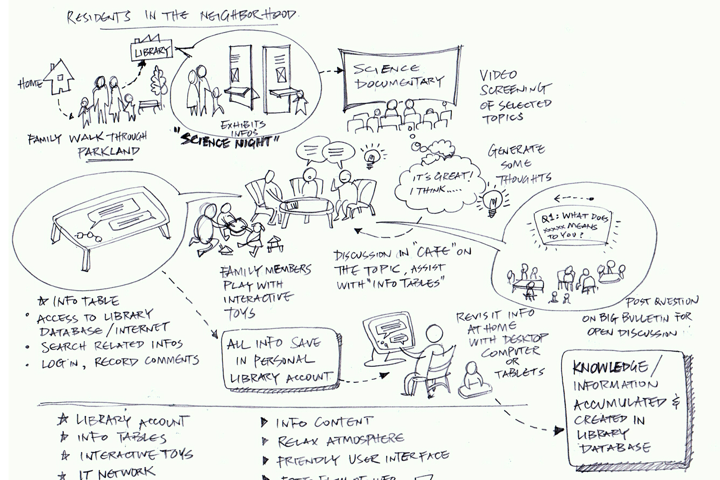 RESIDENTS IN THE NEIGHBORHOOD.
LIBRARY
HOME
FAMILY WALK THROUGH
PARKLAND
EXHIBITS
INFOS
"SCIENCE NIGHT"
SCIENCE
DOCUMENTARY
VIDEO
SCREENING
OF SELECTED
TOPICS
IT'S GREAT!
I THINK.....
GENERATE
SOME
THOUGHTS
Q1: WHAT DOES
XXXXX MEANS
TO YOU?
POST QUESTION
ON BIG BULLETIN FOR
OPEN DISCUSSION
DISCUSSION IN "CAFE" ON
THE TOPIC, ASSIST
WITH "INFO TABLES"
FAMILY MEMBERS
PLAY WITH
INTERACTIVE
TOYS
☆ INFO TABLE
• ACCESS TO LIBRARY
DATABASE/INTERNET
• SEARCH RELATED INFOS
• LOGIN, RECORD COMMENTS
ALL INFO SAVE
IN PERSONAL
LIBRARY ACCOUNT
REVISIT INFO
AT HOME
WITH DESKTOP
COMPUTER
OR
TABLETS
KNOWLEDGE/
INFORMATION
ACCUMULATED &
CREATED IN
LIBRARY
DATABASE
☆ LIBRARY ACCOUNT
☆ INFO TABLES
☆ INTERACTIVE TOYS
☆ IT NETWORK
▶ INFO CONTENT
▶ RELAX ATMOSPHERE
▶ FRIENDLY USER INTERFACE